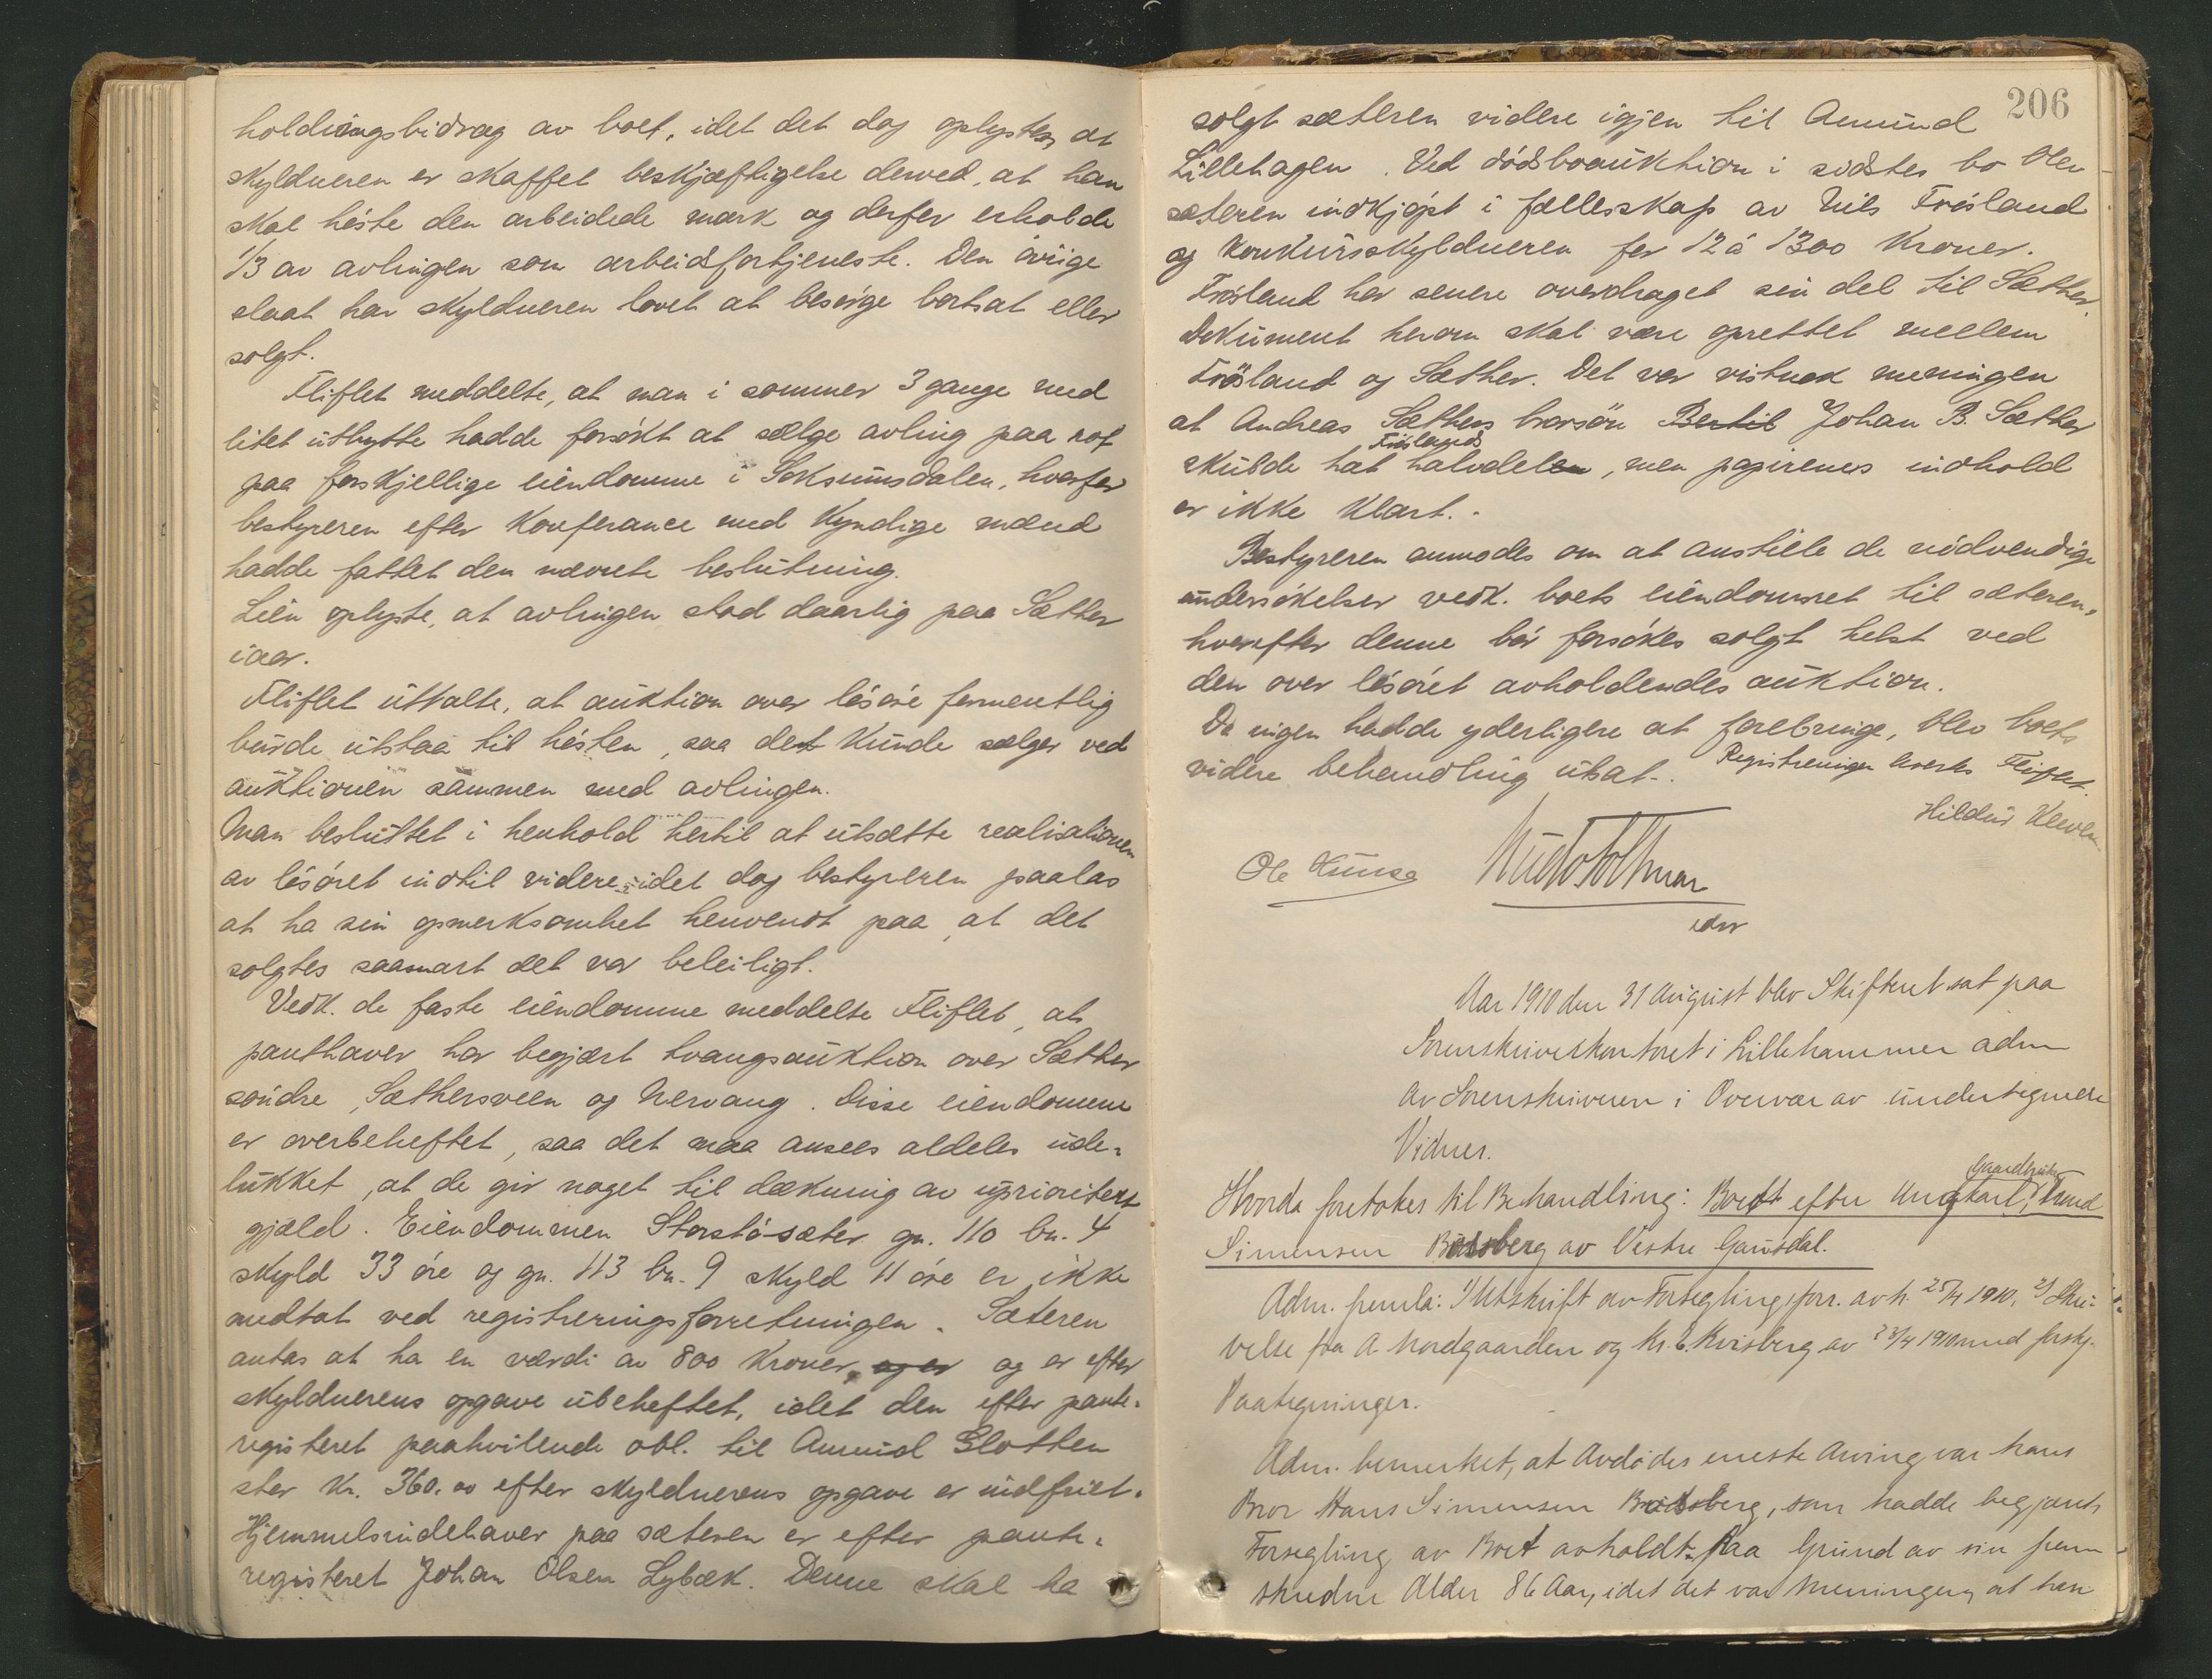 holdningsbidrag av boet, idet det dog oplystes, at
skyldneren er skaffet beskjæftigelse derved, at han
skal høste den arbeidede mark og derfor erholde
1/3 av avlingen som arbeidsfortjeneste. Den øvrige
slaat har skyldneren lovet at besørge bortsat eller
solgt.
Fliflet meddelte, at man i sommer 3 gange med
litet utbytte hadde forsøkt at sælge avling paa rot
paa forskjellige eiendomme i Saksumsdalen, hvorfor
bestyreren efter konferance med kyndige mænd
hadde fattet den nævnte beslutning.
Lien oplyste, at avlingen stod daarlig paa Sæther
iaar.
Fliflet uttalte, at auktion over løsøre formentlig
burde utstaa til høsten, saa det kunde sælges ved
auktionen sammen med avlingen.
Man besluttet i henhold hertil at utsætte realisationen
av løsøret indtil videre, idet dog bestyreren paalas
at ha sin opmerksomhet henvendt paa, at det
solgtes saasnart det var beleiligt.
Vedk. de faste eiendomme meddelte Fliflet, at
panthaver har begjært tvangsauktion over Sæther
søndre, Sæthersveen og Nervang. Disse eiendomme
er overbeheftet, saa det maa ansees aldeles ude-
lukket, at de gir noget til dækning av uprioritert
gjæld. Eiendommen Storslåsæter gn. 110 bn. 4
skyld 33 øre og gn. 113 bn. 9 skyld 11 øre er ikke
medtat ved registreringsforretningen. Sæteren
antas at ha en værdi av 800 kroner, og er og er efter
skyldnerens opgave ubeheftet, idet den efter pante-
registeret paahvilende obl. til Amund Slotten
stor kr. 360.00 efter skyldnerens opgave er indfriet.
Hjemmelsindehaver paa sæteren er efter pante-
registeret Johan Olsen Lybæk. Denne skal ha
206
solgt sæteren videre igjen til Amund
Lillehagen. Ved dødsboauktion i sidstes bo blev
sæteren indkjøpt i fællesskap av Nils Frøsland
og konkursskyldneren for 12 à 1300 kroner.
Frøsland har senere overdraget sin del til Sæther.
Dokument herom skal være oprettet mellem
Frøsland og Sæther. Det var vistnok meningen
at Andreas Sæthers brorsøn Bertil Johan B. Sæther
Frøslands
skulde hat halvdelen, men papirenes indhold
er ikke klart.
Bestyreren anmodes om at anstille de nødvendige
undersøkelser vedk. boets eiendomsret til sæteren,
hvorefter denne bør forsøkes solgt helst ved
den over løsøret avholdendes auktion.
Da ingen hadde yderligere at forebringe, blev boets
videre behandling utsat. Registreringen Fliflet.
Hildur
Ole
Aar 1910 den 31 August blev Skifteret sat paa
Sorenskriverkontoret i Lillehammer adm
av Sorenskriveren i Overvær av undertegnede
Vidner.
Gaardbruker
Hvorda foretokes til Behandling: Boet efter Ungkarl, Trond
Simensen Bødsberg av Vestre Gausdal.
Adm. fremla: 1) Utskrift av Forseglingsforr. avh. 25/4 1910, 2) Skri-
velse fra A. Nordgaarden og Kr. E. Kvisberg av 23/4 1910 med forskj.
Paategninger.
Adm. bemerket, at Avdødes eneste Arving var hans
Bror Hans Simensen Bødsberg, som hadde begjært
Forsegling av Boet avholdt paa Grund av sin frem-
skredne Alder 86 Aar, idet det var Meningen, at han